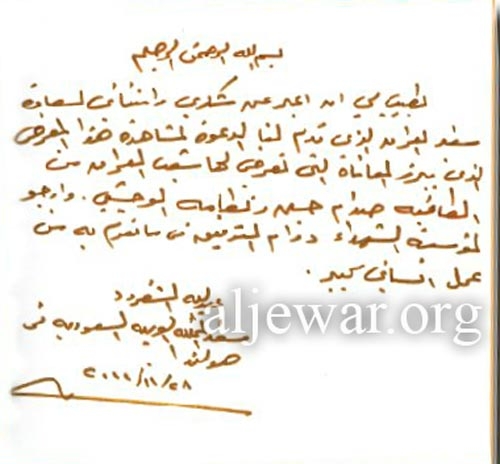 بسم الله الرحمن الرحيم
يطيب لي ان اعبر عن شكري وامتناني لسعادة
سفير العراق الذي قدم لنا الدعوة لمشاهدة هذا المعرض
الذي يبرز المعاناة التي تعرض لها شعب العراق من
الطاغية صدام حسين ونظامه الوحشي. وارجو
لمؤسسة الشهداء دوام التوفيق في ما تقوم به من
عمل انساني كبير.
عبدالله الشغرود
سفير المملكة العربية السعودية في
هولندا
٢٠١١/١١/٢٨
aljewar.org